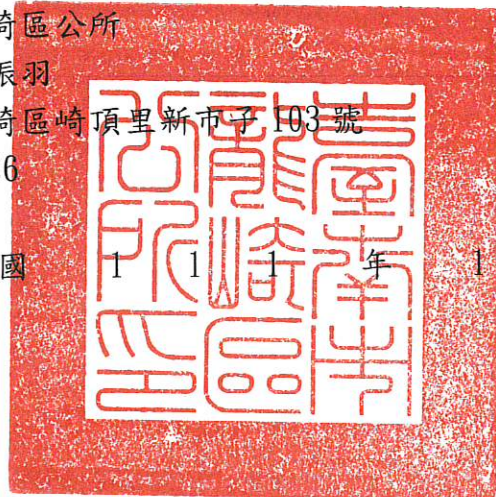 崎區公所
張羽
崎區崎頂里新市子 103 號
6
國 1 1 1 年 1
臺南市
龍崎區
公所印